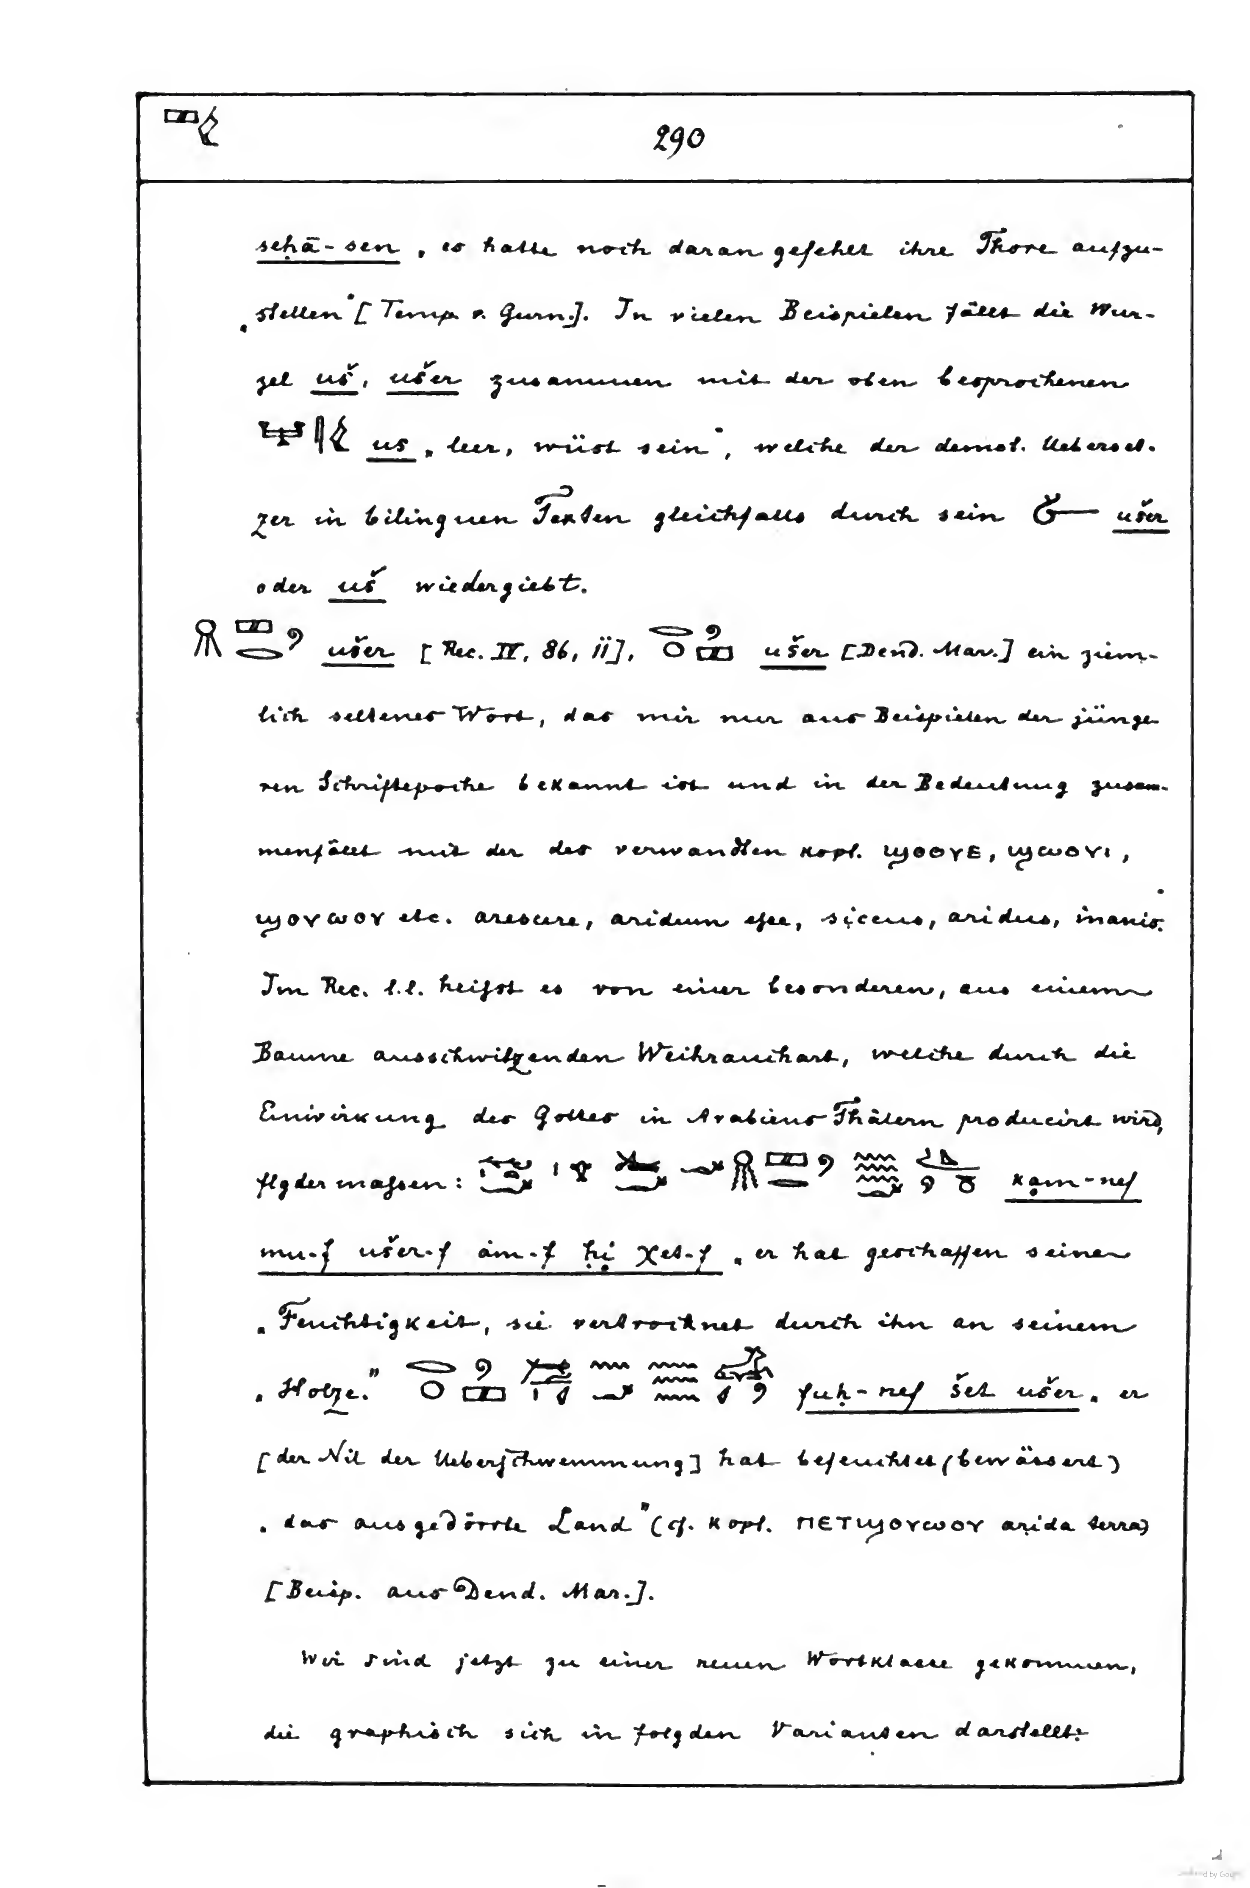 290
seḥā-sen „ es hatte noch daran gefehlt ihre Thore aufzu-
„stellen“ [Temp. v. Gurn.]. In vielen Beispielen fällt die Wur-
zel uš, ušer zusammen mit der oben besprochenen
us „leer, wüst sein“, welche der demot. Ueberset-
zer in bilinguen Texten gleichfalls durch sein ušer
oder uš wiedergiebt.
ušer [Rec. IV, 86, ii], ušer [Dend. Mar.] ein ziem-
lich seltenes Wort, das mir nur aus Beispielen der jünge-
ren Schriftepoche bekannt ist und in der Bedeutung zusam-
menfällt mit der des verwandten kopt. ϣⲟⲟⲩⲉ, ϣⲱⲟⲩⲓ,
ϣⲟⲩⲱⲟⲩ etc. arescere, aridum esse, siccus, aridus, inanis.
Im Rec. l.l. heifst es von einer besonderen, aus einem
Baume ausschwitzenden Weihrauchart, welche durch die
Einwirkung des Gottes in Arabiens Thälern producirt wird,
flgdermafsen: ḳam-nef
mu-f ušer-f ȧm-f ḥi χet-f „er hat geschaffen seine
„Feuchtigkeit, sie vertrocknet durch ihn an seinem
„Holze.“ fuḥ-nef šet ušer „er
[der Nil der Ueberschwemmung] hat befeuchtet (bewässert)
„das ausgedörrte Land“ (cf. kopt. ⲡⲉⲧϣⲟⲩⲱⲟⲩ arida terra)
[Beisp. aus Dend. Mar.].
Wir sind jetzt zu einer neuen Wortklasse gekommen,
die graphisch sich in folgden Varianten darstellt: